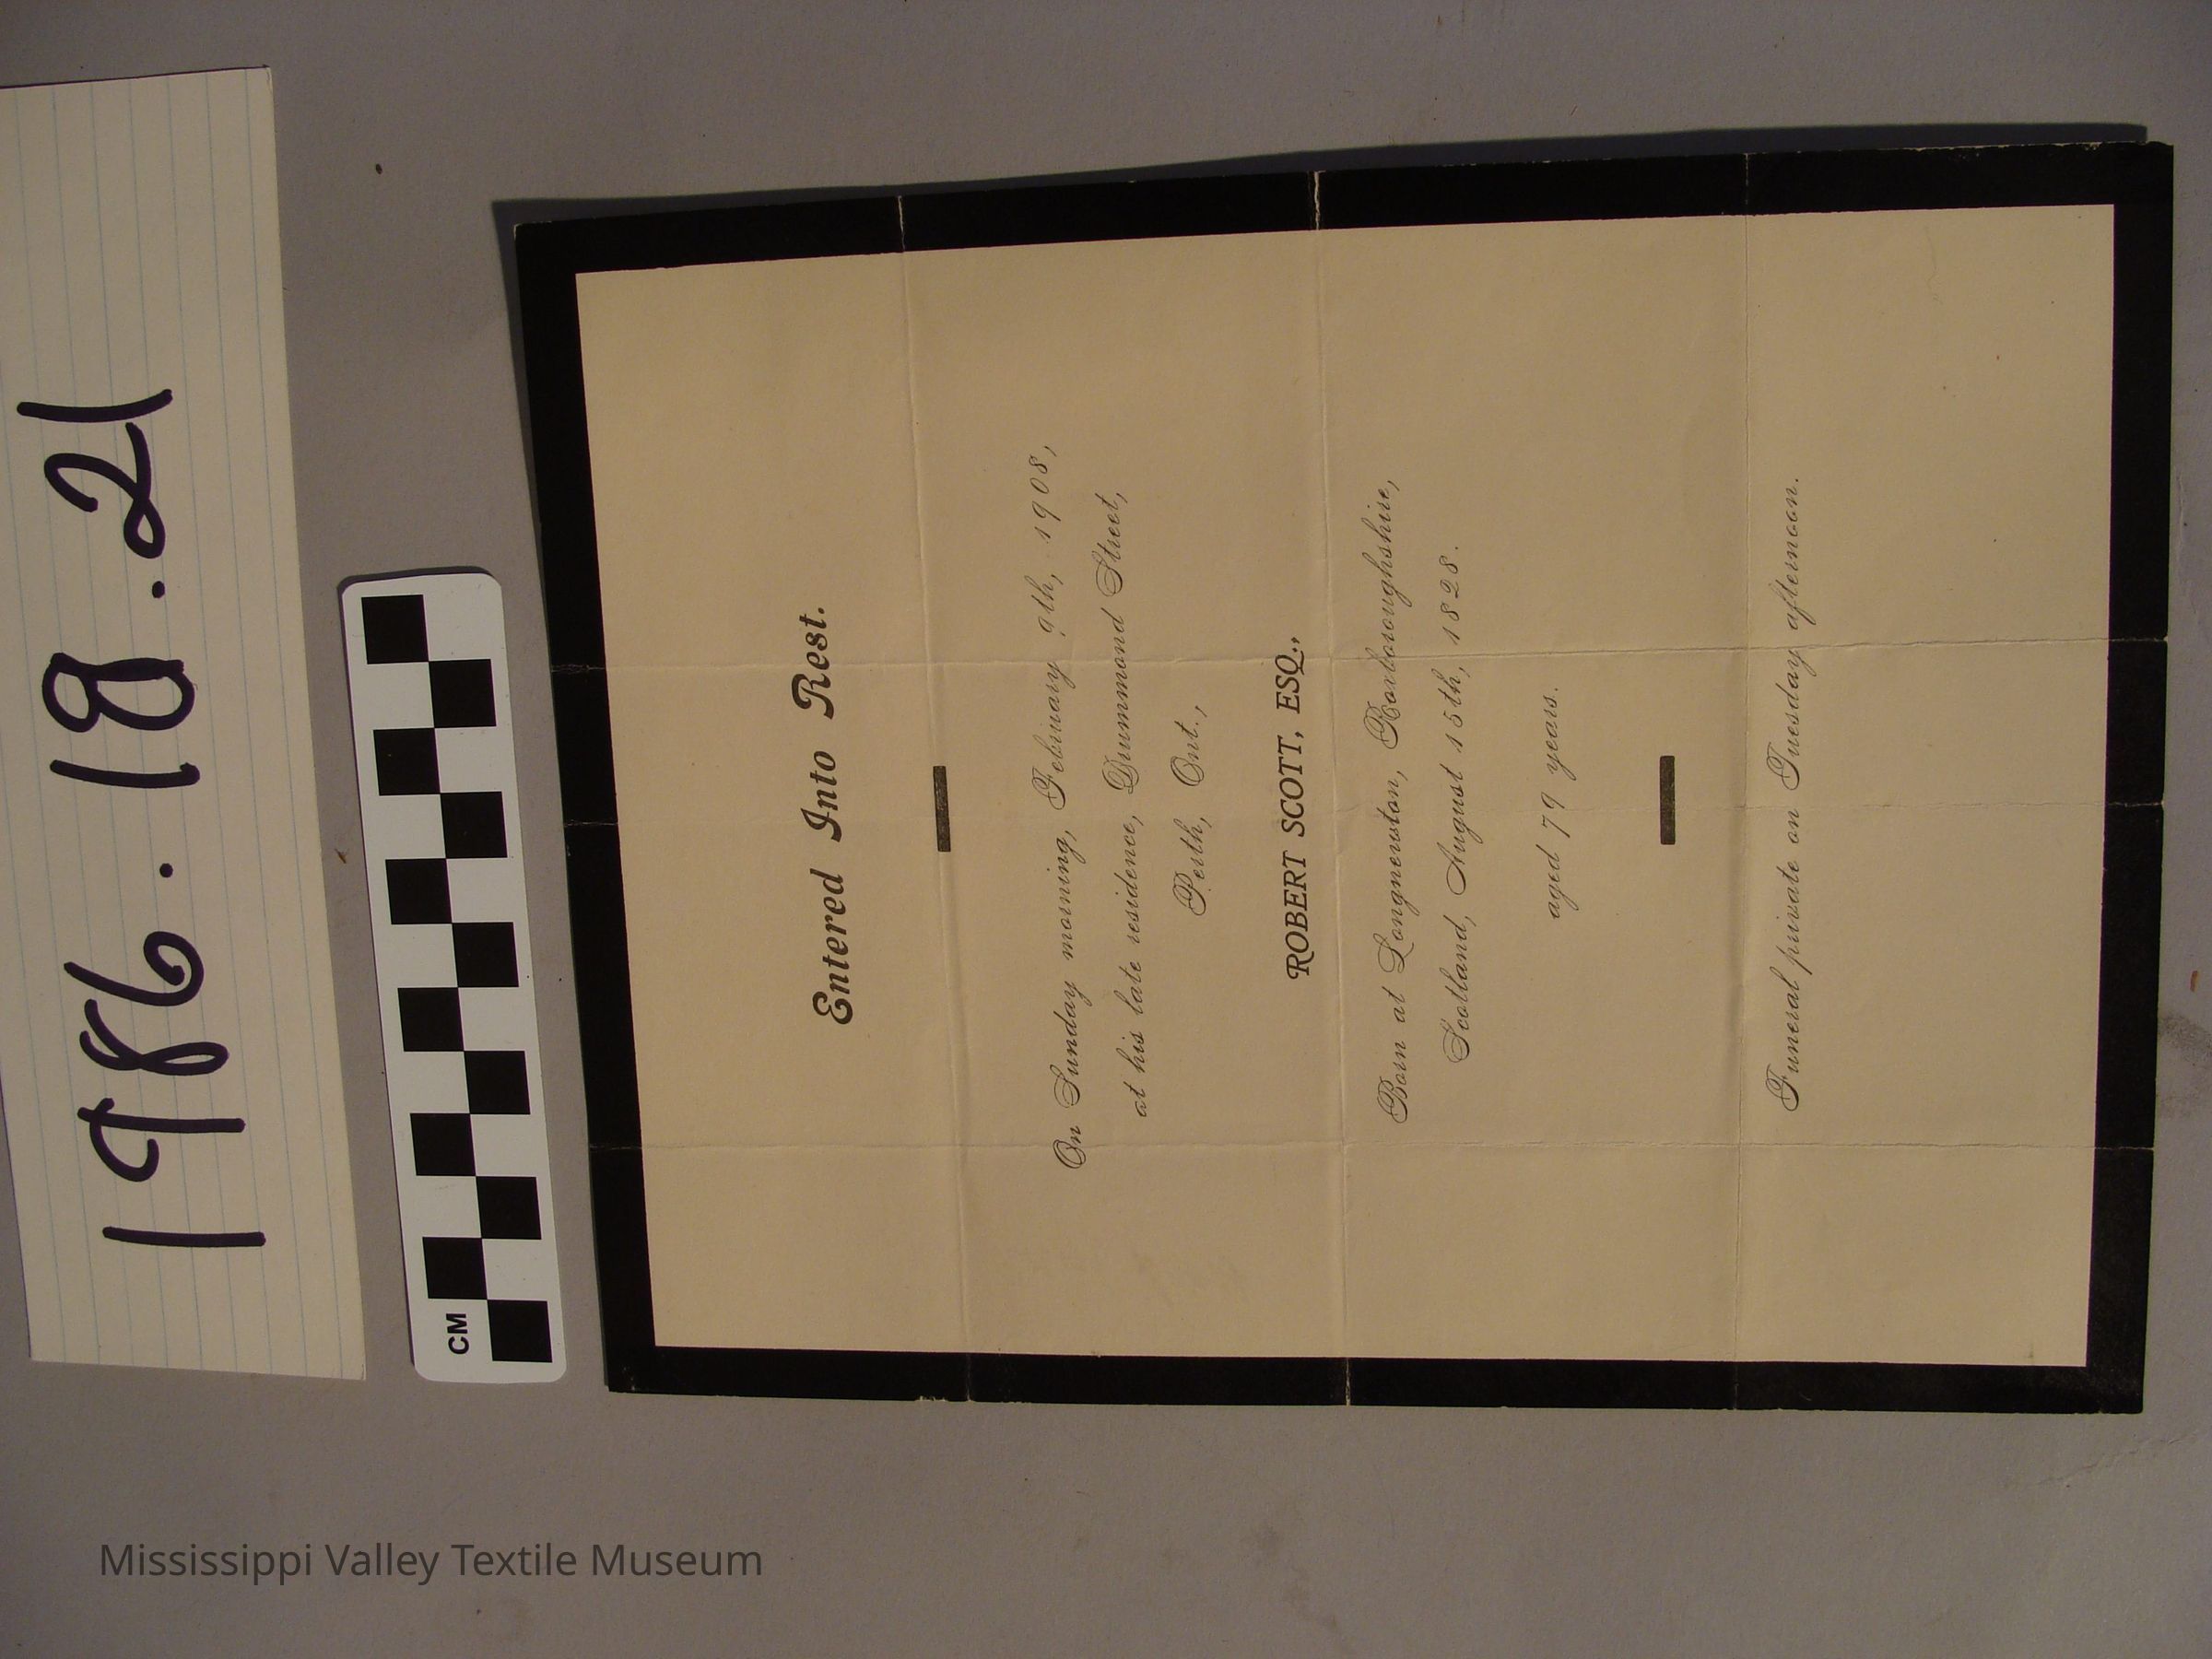 1986.18.21
CM
Entered Into Rest.
On Sunday morning, February 9th, 1908,
at his late residence, Drummond Street,
Perth, Ont.,
ROBERT SCOTT, ESQ.,
Born at Longnewton, Roxboroughshire,
Scotland, August 15th, 1828.
aged 79 years.
Funeral private on Tuesday afternoon.
Mississippi Valley Textile Museum